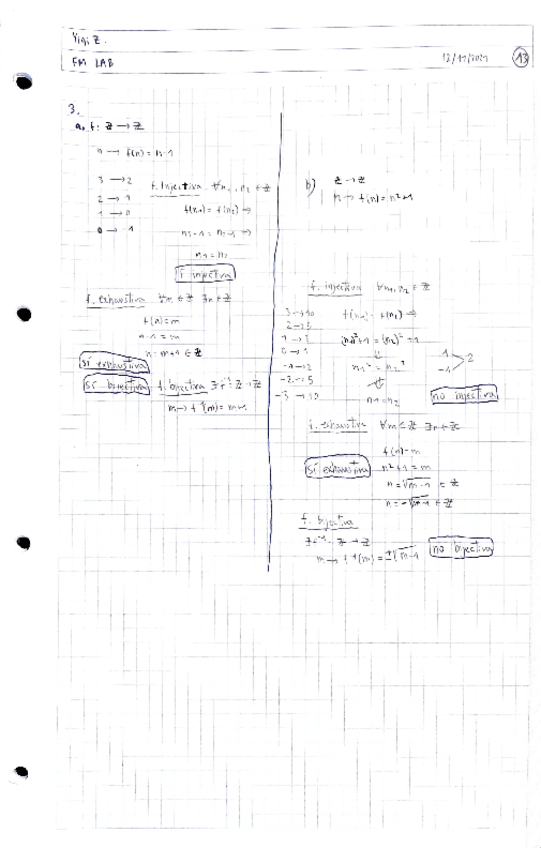 Yiqi Z.
FM LAB
12/11/2021
13
3.
a. f: ℤ → ℤ
n → f(n) = n-1
3 → 2
2 → 1
1 → 0
0 → -1
f. Injectiva ∀n₁, n₂ ∈ ℤ
f(n₁) = f(n₂) →
n₁-1 = n₂-1 →
n₁ = n₂
f injectiva
f. exhaustiva ∀m ∈ ℤ ∃n ∈ ℤ
f(n) = m
n-1 = m
n = m+1 ∈ ℤ
sí exhaustiva
sí bijectiva
f. bijectiva ∃ f⁻¹: ℤ → ℤ
m → f⁻¹(m) = m+1
b) ℤ → ℤ
n → f(n) = n²+1
f. injectiva ∀n₁, n₂ ∈ ℤ
3 → 10
2 → 5
1 → 2
0 → 1
-1 → 2
-2 → 5
-3 → 10
f(n₁) = f(n₂) →
(n₁)²+1 = (n₂)²+1
⇓
n₁² = n₂²
⇓
n₁ = n₂
1
-1 > 2
no injectiva
f. exhaustiva ∀m ∈ ℤ ∃n ∈ ℤ
f(n) = m
n²+1 = m
n = √m-1 ∈ ℤ
n = -√m-1 ∈ ℤ
sí exhaustiva
f. bijectiva
∃f⁻¹: ℤ → ℤ
m → f⁻¹(m) = ±√m-1
no bijectiva